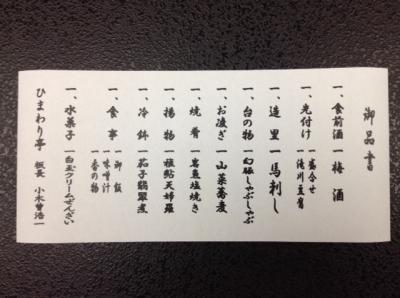 御品書
一、食前酒 ー 梅酒
一、先付け ー 蓋合せ
ー 滝川豆腐
一、造里 ー 馬刺し
一、台の物 ー 幻豚しゃぶしゃぶ
一、お凌ぎ ー 山菜蕎麦
一、焼肴 ー 岩魚塩焼き
一、揚物 ー 稚鮎天婦羅
一、冷鉢 ー 茄子翡翠煮
一、食事 ー 御飯
ー 味噌汁
ー 香の物
一、水菓子 ー 白玉クリームぜんざい
ひまわり亭 板長 小木曽浩一